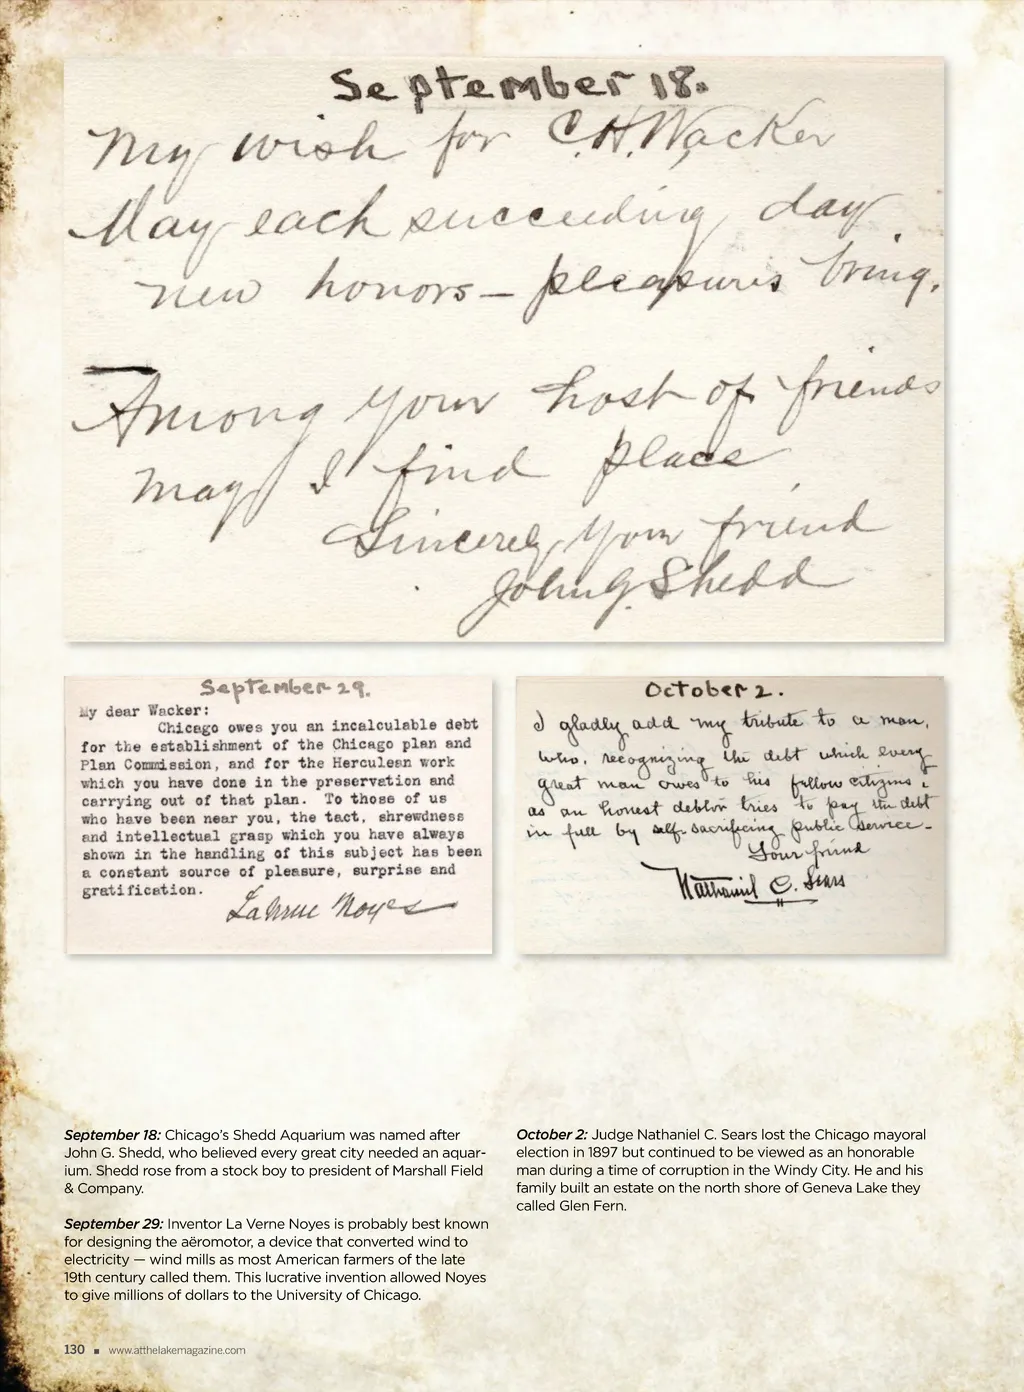 September 18.
My wish for C.H. Wacker
May each succeeding day
new honors — pleasures bring.
Among your host of friends
may I find place
Sincerely your friend
John G. Shedd
September 29.
My dear Wacker:
Chicago owes you an incalculable debt
for the establishment of the Chicago plan and
Plan Commission, and for the Herculean work
which you have done in the preservation and
carrying out of that plan. To those of us
who have been near you, the tact, shrewdness
and intellectual grasp which you have always
shown in the handling of this subject has been
a constant source of pleasure, surprise and
gratification.
La Verne Noyes
October 2.
I gladly add my tribute to a man,
who, recognizing the debt which every
great man owes to his fellow citizens,
as an honest debtor tries to pay the debt
in full by self-sacrificing public service—
Your friend
Nathaniel C. Sears
September 18: Chicago's Shedd Aquarium was named after
John G. Shedd, who believed every great city needed an aquar-
ium. Shedd rose from a stock boy to president of Marshall Field
& Company.
September 29: Inventor La Verne Noyes is probably best known
for designing the aëromotor, a device that converted wind to
electricity — wind mills as most American farmers of the late
19th century called them. This lucrative invention allowed Noyes
to give millions of dollars to the University of Chicago.
October 2: Judge Nathaniel C. Sears lost the Chicago mayoral
election in 1897 but continued to be viewed as an honorable
man during a time of corruption in the Windy City. He and his
family built an estate on the north shore of Geneva Lake they
called Glen Fern.
130 ■ www.atthelakemagazine.com